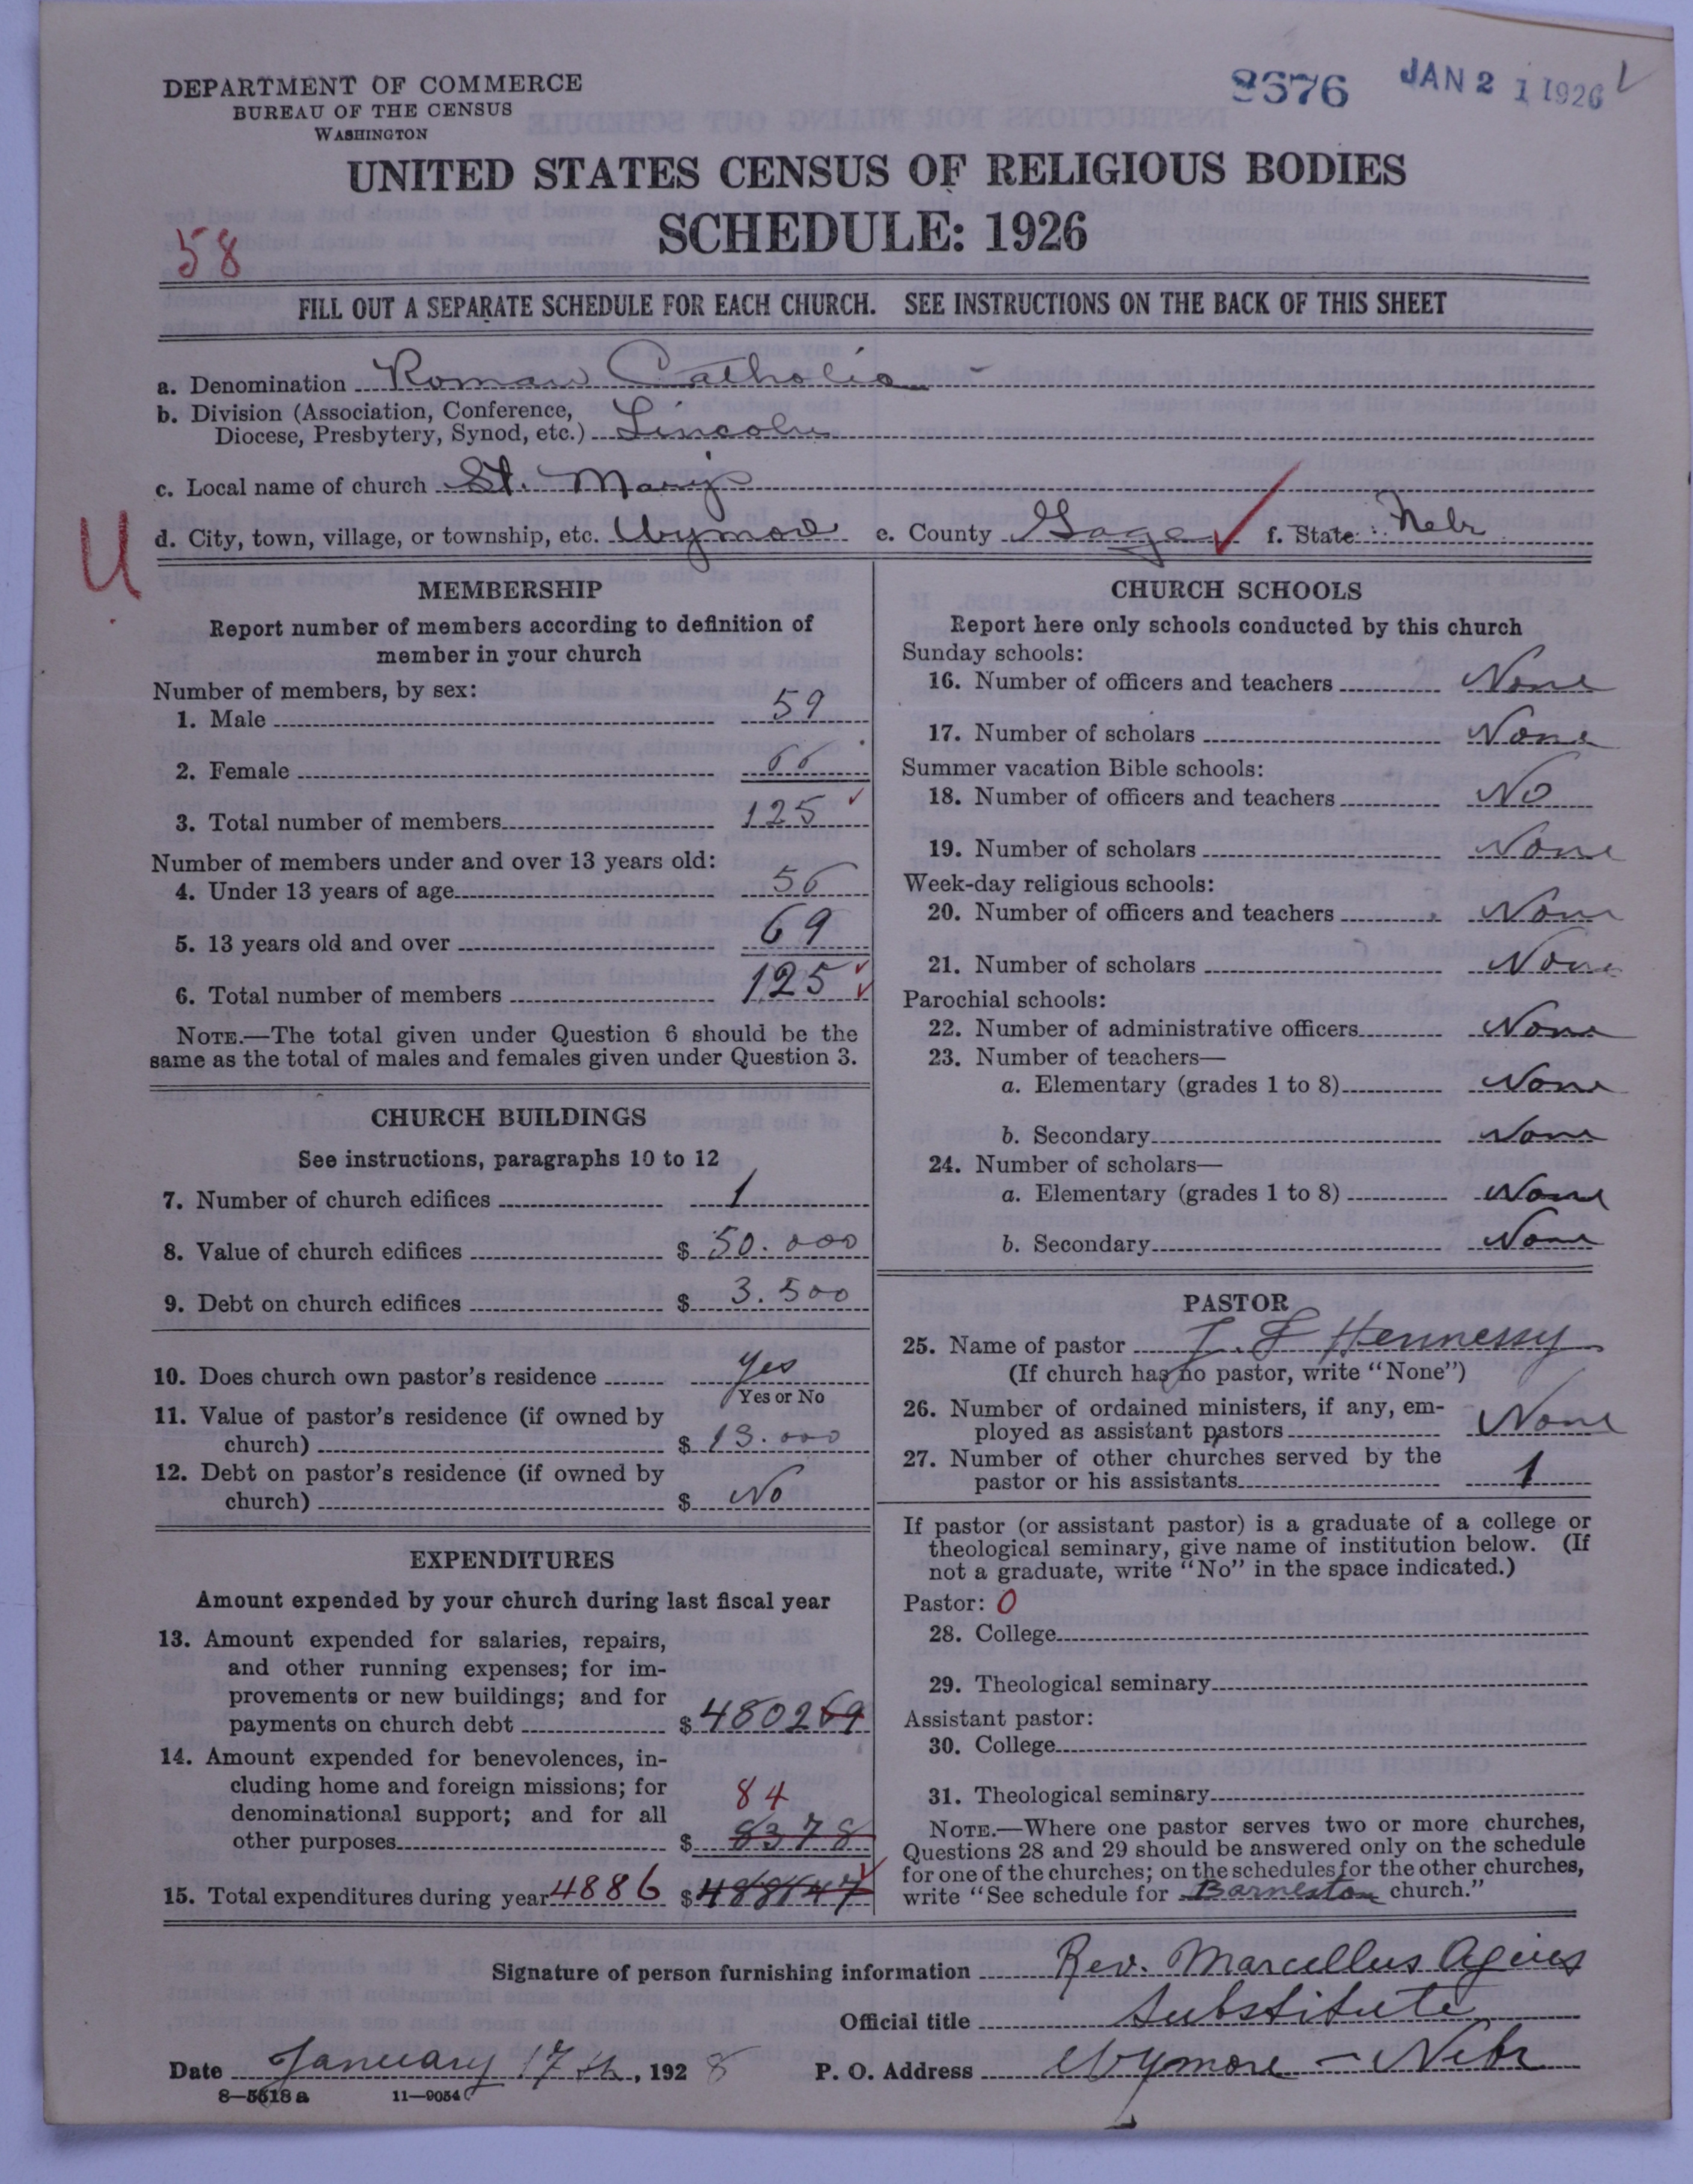 DEPARTMENT OF COMMERCE
BUREAU OF THE CENSUS
WASHINGTON
JAN 2 1 1926
UNITED STATES CENSUS OF RELIGIOUS BODIES
SCHEDULE: 1926
58
FILL OUT A SEPARATE SCHEDULE FOR EACH CHURCH. SEE INSTRUCTIONS ON THE BACK OF THIS SHEET
a. Denomination Roman Catholic
b. Division (Association, Conference,
Diocese, Presbytery, Synod, etc.) Lincoln
c. Local name of church St. Mary's
U
d. City, town, village, or township, etc. Wymore e. County Gage f. State Nebr
MEMBERSHIP
Report number of members according to definition of
member in your church
Number of members, by sex:
1. Male 59
2. Female 66
3. Total number of members 125
Number of members under and over 13 years old:
4. Under 13 years of age 56
5. 13 years old and over 69
6. Total number of members 125
NOTE.—The total given under Question 6 should be the
same as the total of males and females given under Question 3.
CHURCH BUILDINGS
See instructions, paragraphs 10 to 12
7. Number of church edifices 1
8. Value of church edifices $ 50.000
9. Debt on church edifices $ 3.500
10. Does church own pastor's residence Yes
Yes or No
11. Value of pastor's residence (if owned by
church) $ 13.000
12. Debt on pastor's residence (if owned by
church) $ No
EXPENDITURES
Amount expended by your church during last fiscal year
13. Amount expended for salaries, repairs,
and other running expenses; for im-
provements or new buildings; and for
payments on church debt $ 480269
14. Amount expended for benevolences, in-
cluding home and foreign missions; for
84
denominational support; and for all
other purposes $ 8378
15. Total expenditures during year 4886 $ 488647
CHURCH SCHOOLS
Report here only schools conducted by this church
Sunday schools:
16. Number of officers and teachers None
17. Number of scholars None
Summer vacation Bible schools:
18. Number of officers and teachers No
19. Number of scholars None
Week-day religious schools:
20. Number of officers and teachers None
21. Number of scholars None
Parochial schools:
22. Number of administrative officers None
23. Number of teachers—
a. Elementary (grades 1 to 8) None
b. Secondary None
24. Number of scholars—
a. Elementary (grades 1 to 8) None
b. Secondary None
PASTOR
25. Name of pastor J. F Hennessy
(If church has no pastor, write "None")
26. Number of ordained ministers, if any, em-
ployed as assistant pastors None
27. Number of other churches served by the
pastor or his assistants 1
If pastor (or assistant pastor) is a graduate of a college or
theological seminary, give name of institution below. (If
not a graduate, write "No" in the space indicated.)
Pastor: 0
28. College
29. Theological seminary
Assistant pastor:
30. College
31. Theological seminary
NOTE.—Where one pastor serves two or more churches,
Questions 28 and 29 should be answered only on the schedule
for one of the churches; on the schedules for the other churches,
write "See schedule for Barneston church."
Signature of person furnishing information Rev. Marcellus Agius
Official title Substitute
Date January 17th, 1928 P. O. Address Wymore - Nebr
8—5618 a 11—9054